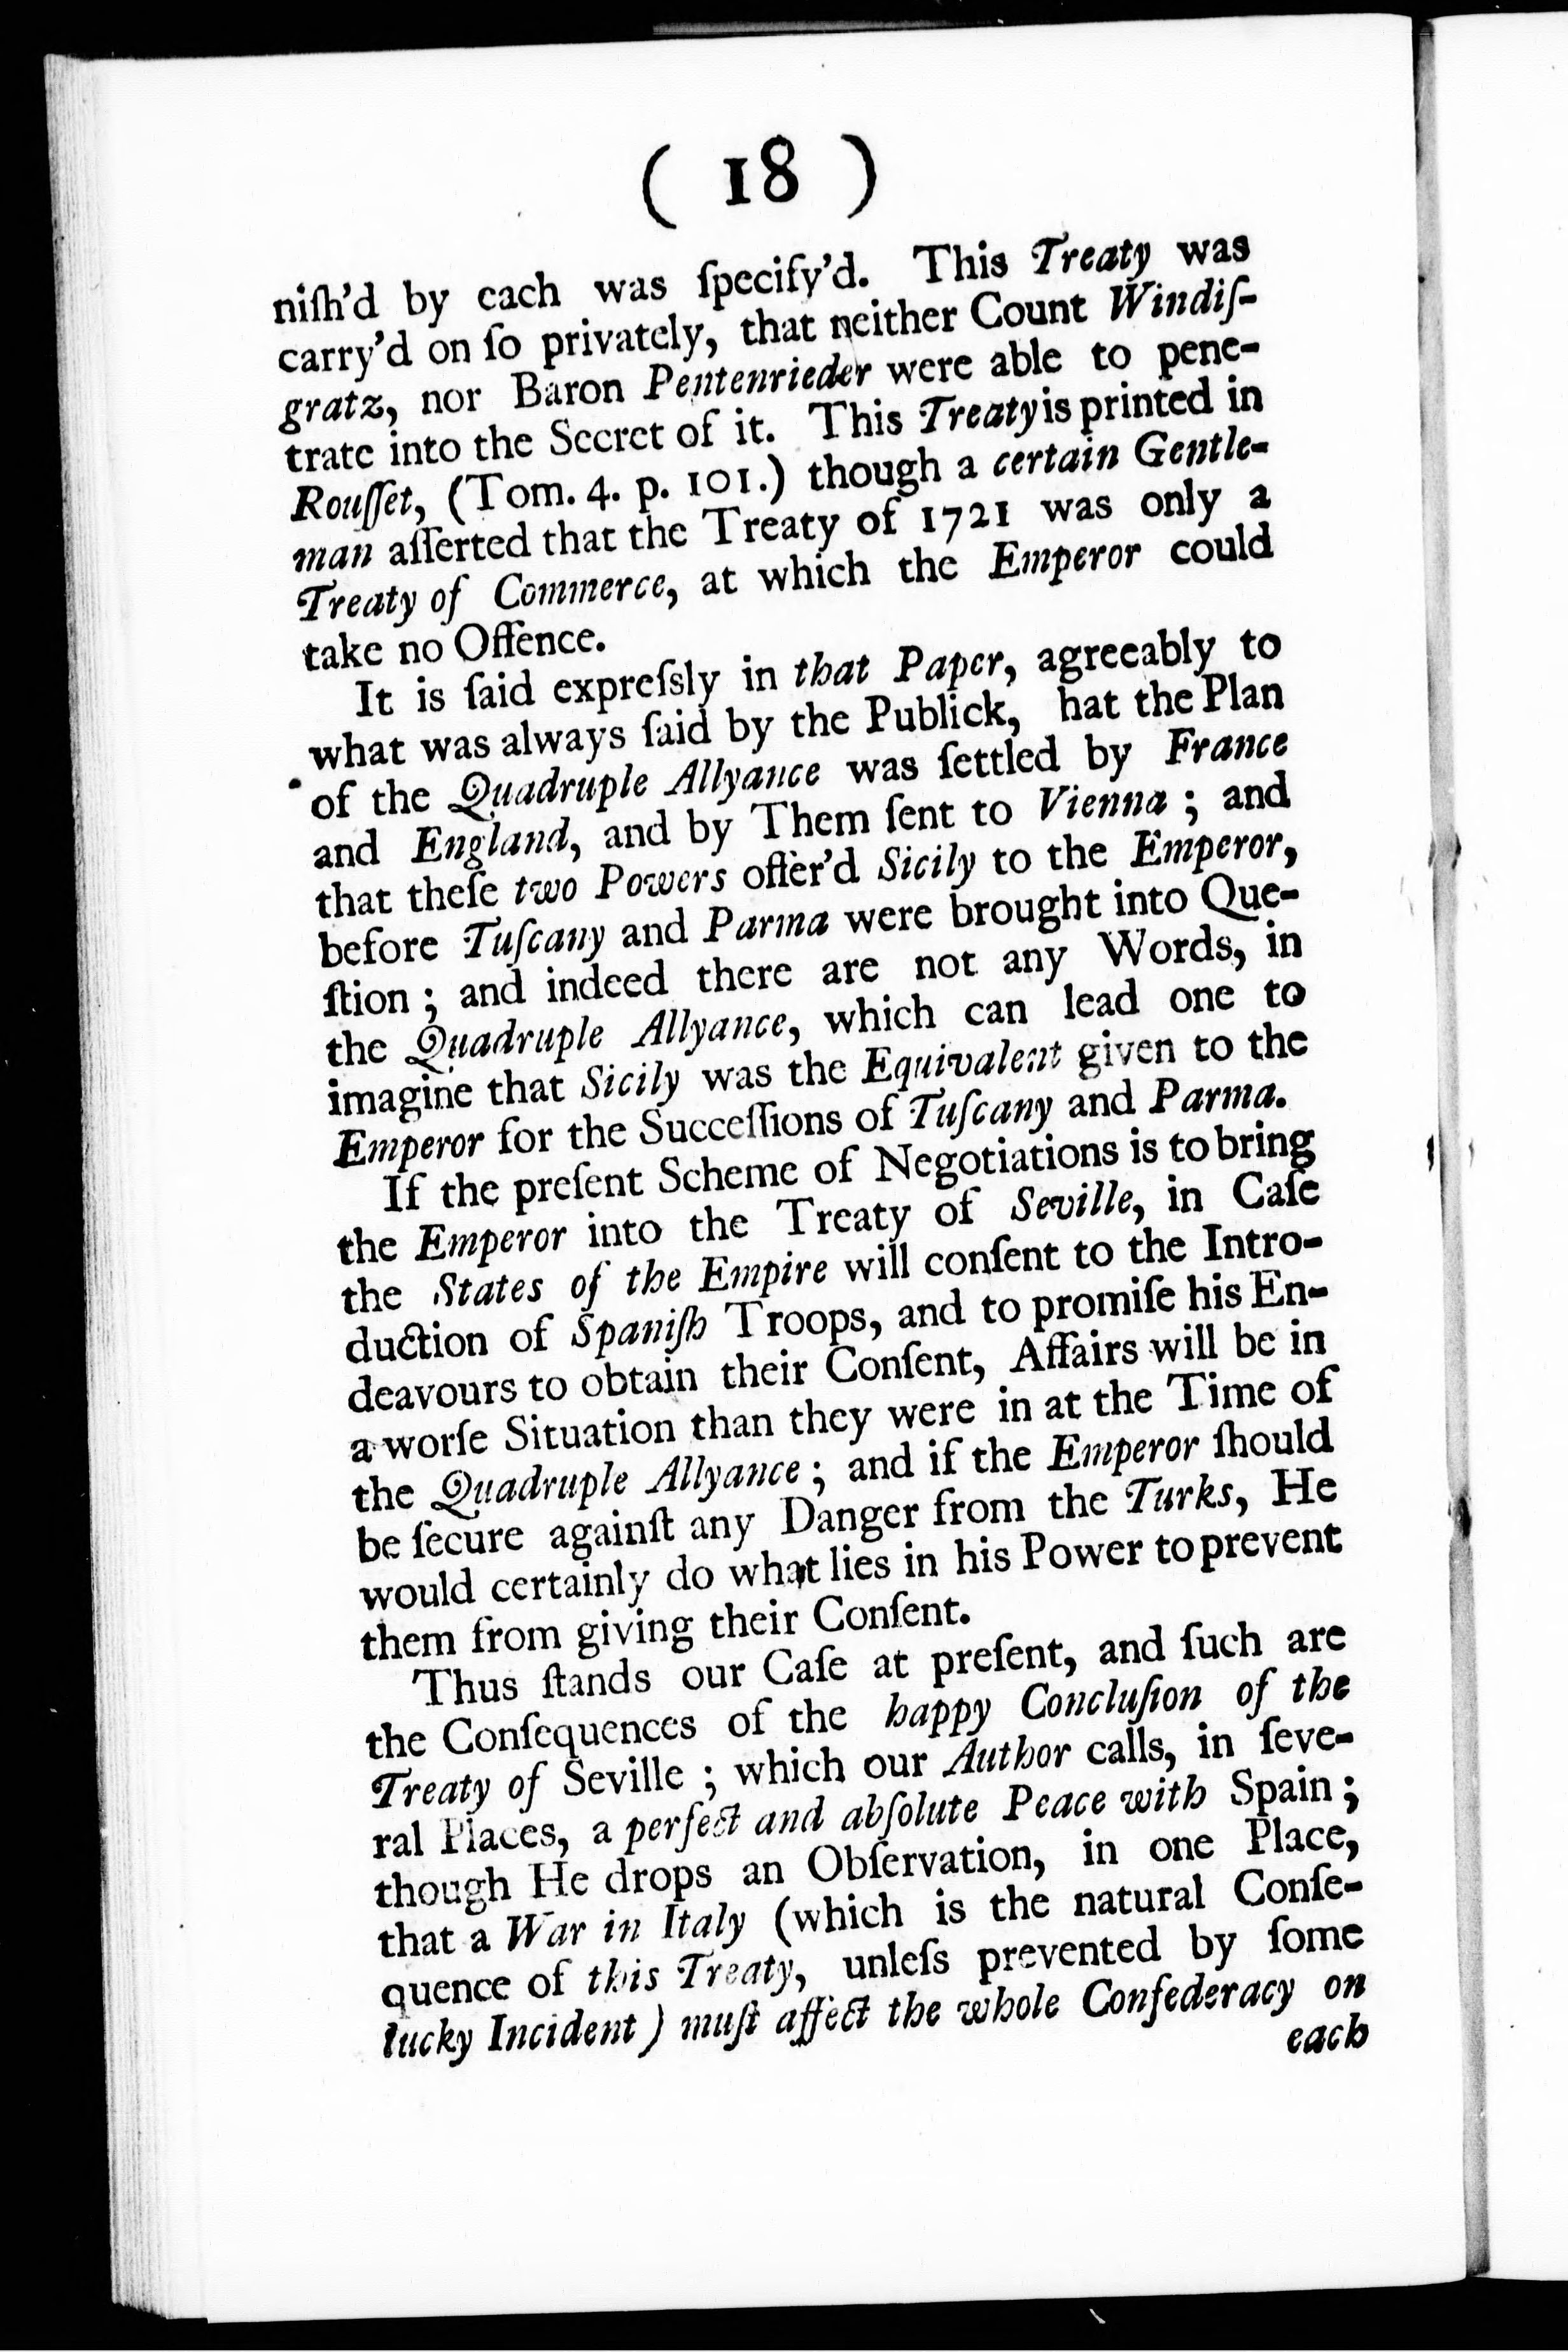 ( 18 )
niſh'd by each was ſpecify'd. This Treaty was
carry'd on ſo privately, that neither Count Windiſ-
gratz, nor Baron Pentenrieder were able to pene-
trate into the Secret of it. This Treaty is printed in
Rouſſet, (Tom. 4. p. 101.) though a certain Gentle-
man aſſerted that the Treaty of 1721 was only a
Treaty of Commerce, at which the Emperor could
take no Offence.
It is ſaid expreſsly in that Paper, agreeably to
what was always ſaid by the Publick, hat the Plan
of the Quadruple Allyance was ſettled by France
and England, and by Them ſent to Vienna ; and
that theſe two Powers offer'd Sicily to the Emperor,
before Tuſcany and Parma were brought into Que-
ſtion ; and indeed there are not any Words, in
the Quadruple Allyance, which can lead one to
imagine that Sicily was the Equivalent given to the
Emperor for the Succeſſions of Tuſcany and Parma.
If the preſent Scheme of Negotiations is to bring
the Emperor into the Treaty of Seville, in Caſe
the States of the Empire will conſent to the Intro-
duction of Spaniſh Troops, and to promiſe his En-
deavours to obtain their Conſent, Affairs will be in
a worſe Situation than they were in at the Time of
the Quadruple Allyance ; and if the Emperor ſhould
be ſecure againſt any Danger from the Turks, He
would certainly do what lies in his Power to prevent
them from giving their Conſent.
Thus ſtands our Caſe at preſent, and ſuch are
the Conſequences of the happy Concluſion of the
Treaty of Seville ; which our Author calls, in ſeve-
ral Places, a perfect and abſolute Peace with Spain ;
though He drops an Obſervation, in one Place,
that a War in Italy (which is the natural Conſe-
quence of this Treaty, unleſs prevented by ſome
lucky Incident) muſt affect the whole Confederacy on
each